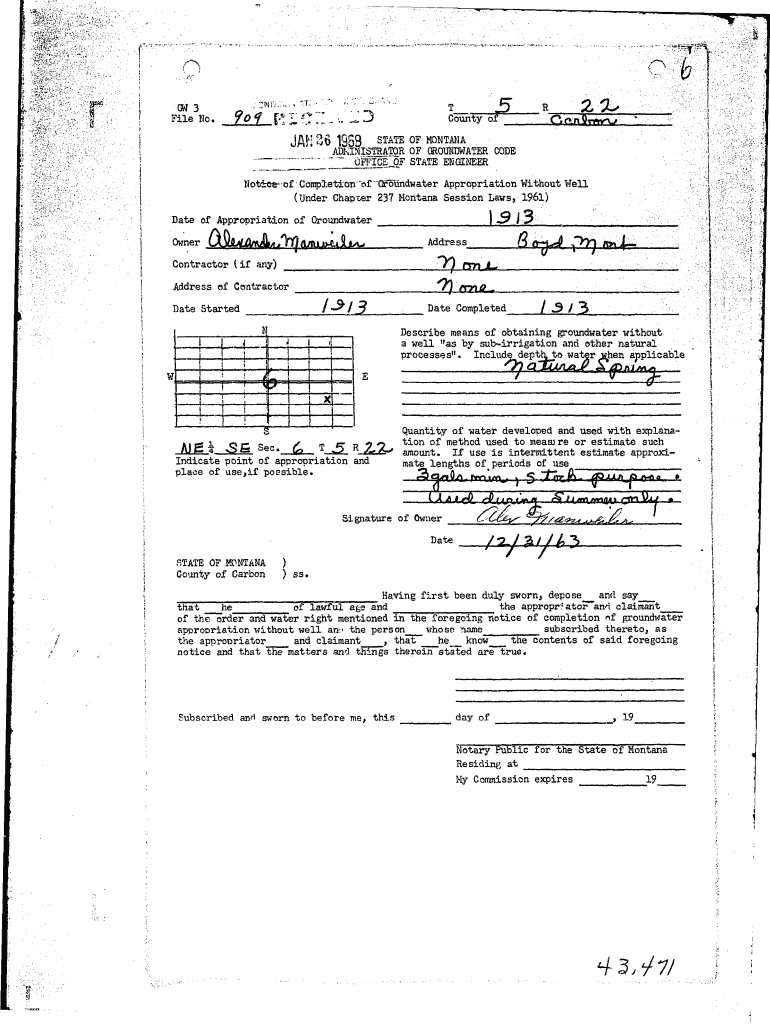 6
GW 3
File No. 909
T 5 R 22
County of Carbon
JAN 26 1968
STATE OF MONTANA
ADMINISTRATOR OF GROUNDWATER CODE
OFFICE OF STATE ENGINEER
Notice of Completion of Groundwater Appropriation Without Well
(Under Chapter 237 Montana Session Laws, 1961)
Date of Appropriation of Groundwater 1913
Owner Alexander Manweiler Address Boyd, Mont
Contractor (if any) None
Address of Contractor None
Date Started 1913 Date Completed 1913
N
W E
6
x
S
NE ¼ SE Sec. 6 T 5 R 22
Indicate point of appropriation and
place of use,if possible.
Describe means of obtaining groundwater without
a well "as by sub-irrigation and other natural
processes". Include depth to water when applicable
Natural Spring
Quantity of water developed and used with explana-
tion of method used to measure or estimate such
amount. If use is intermittent estimate approxi-
mate lengths of periods of use
3 gals min, Stock purpose.
Used during Summer only.
Signature of Owner Alex Manweiler
Date 12/21/63
STATE OF MONTANA )
County of Carbon ) ss.
Having first been duly sworn, depose and say
that he of lawful age and the appropriator and claimant
of the order and water right mentioned in the foregoing notice of completion of groundwater
appropriation without well and the person whose name subscribed thereto, as
the appropriator and claimant , that he know the contents of said foregoing
notice and that the matters and things therein stated are true.
Subscribed and sworn to before me, this day of , 19
Notary Public for the State of Montana
Residing at
My Commission expires 19
43,471